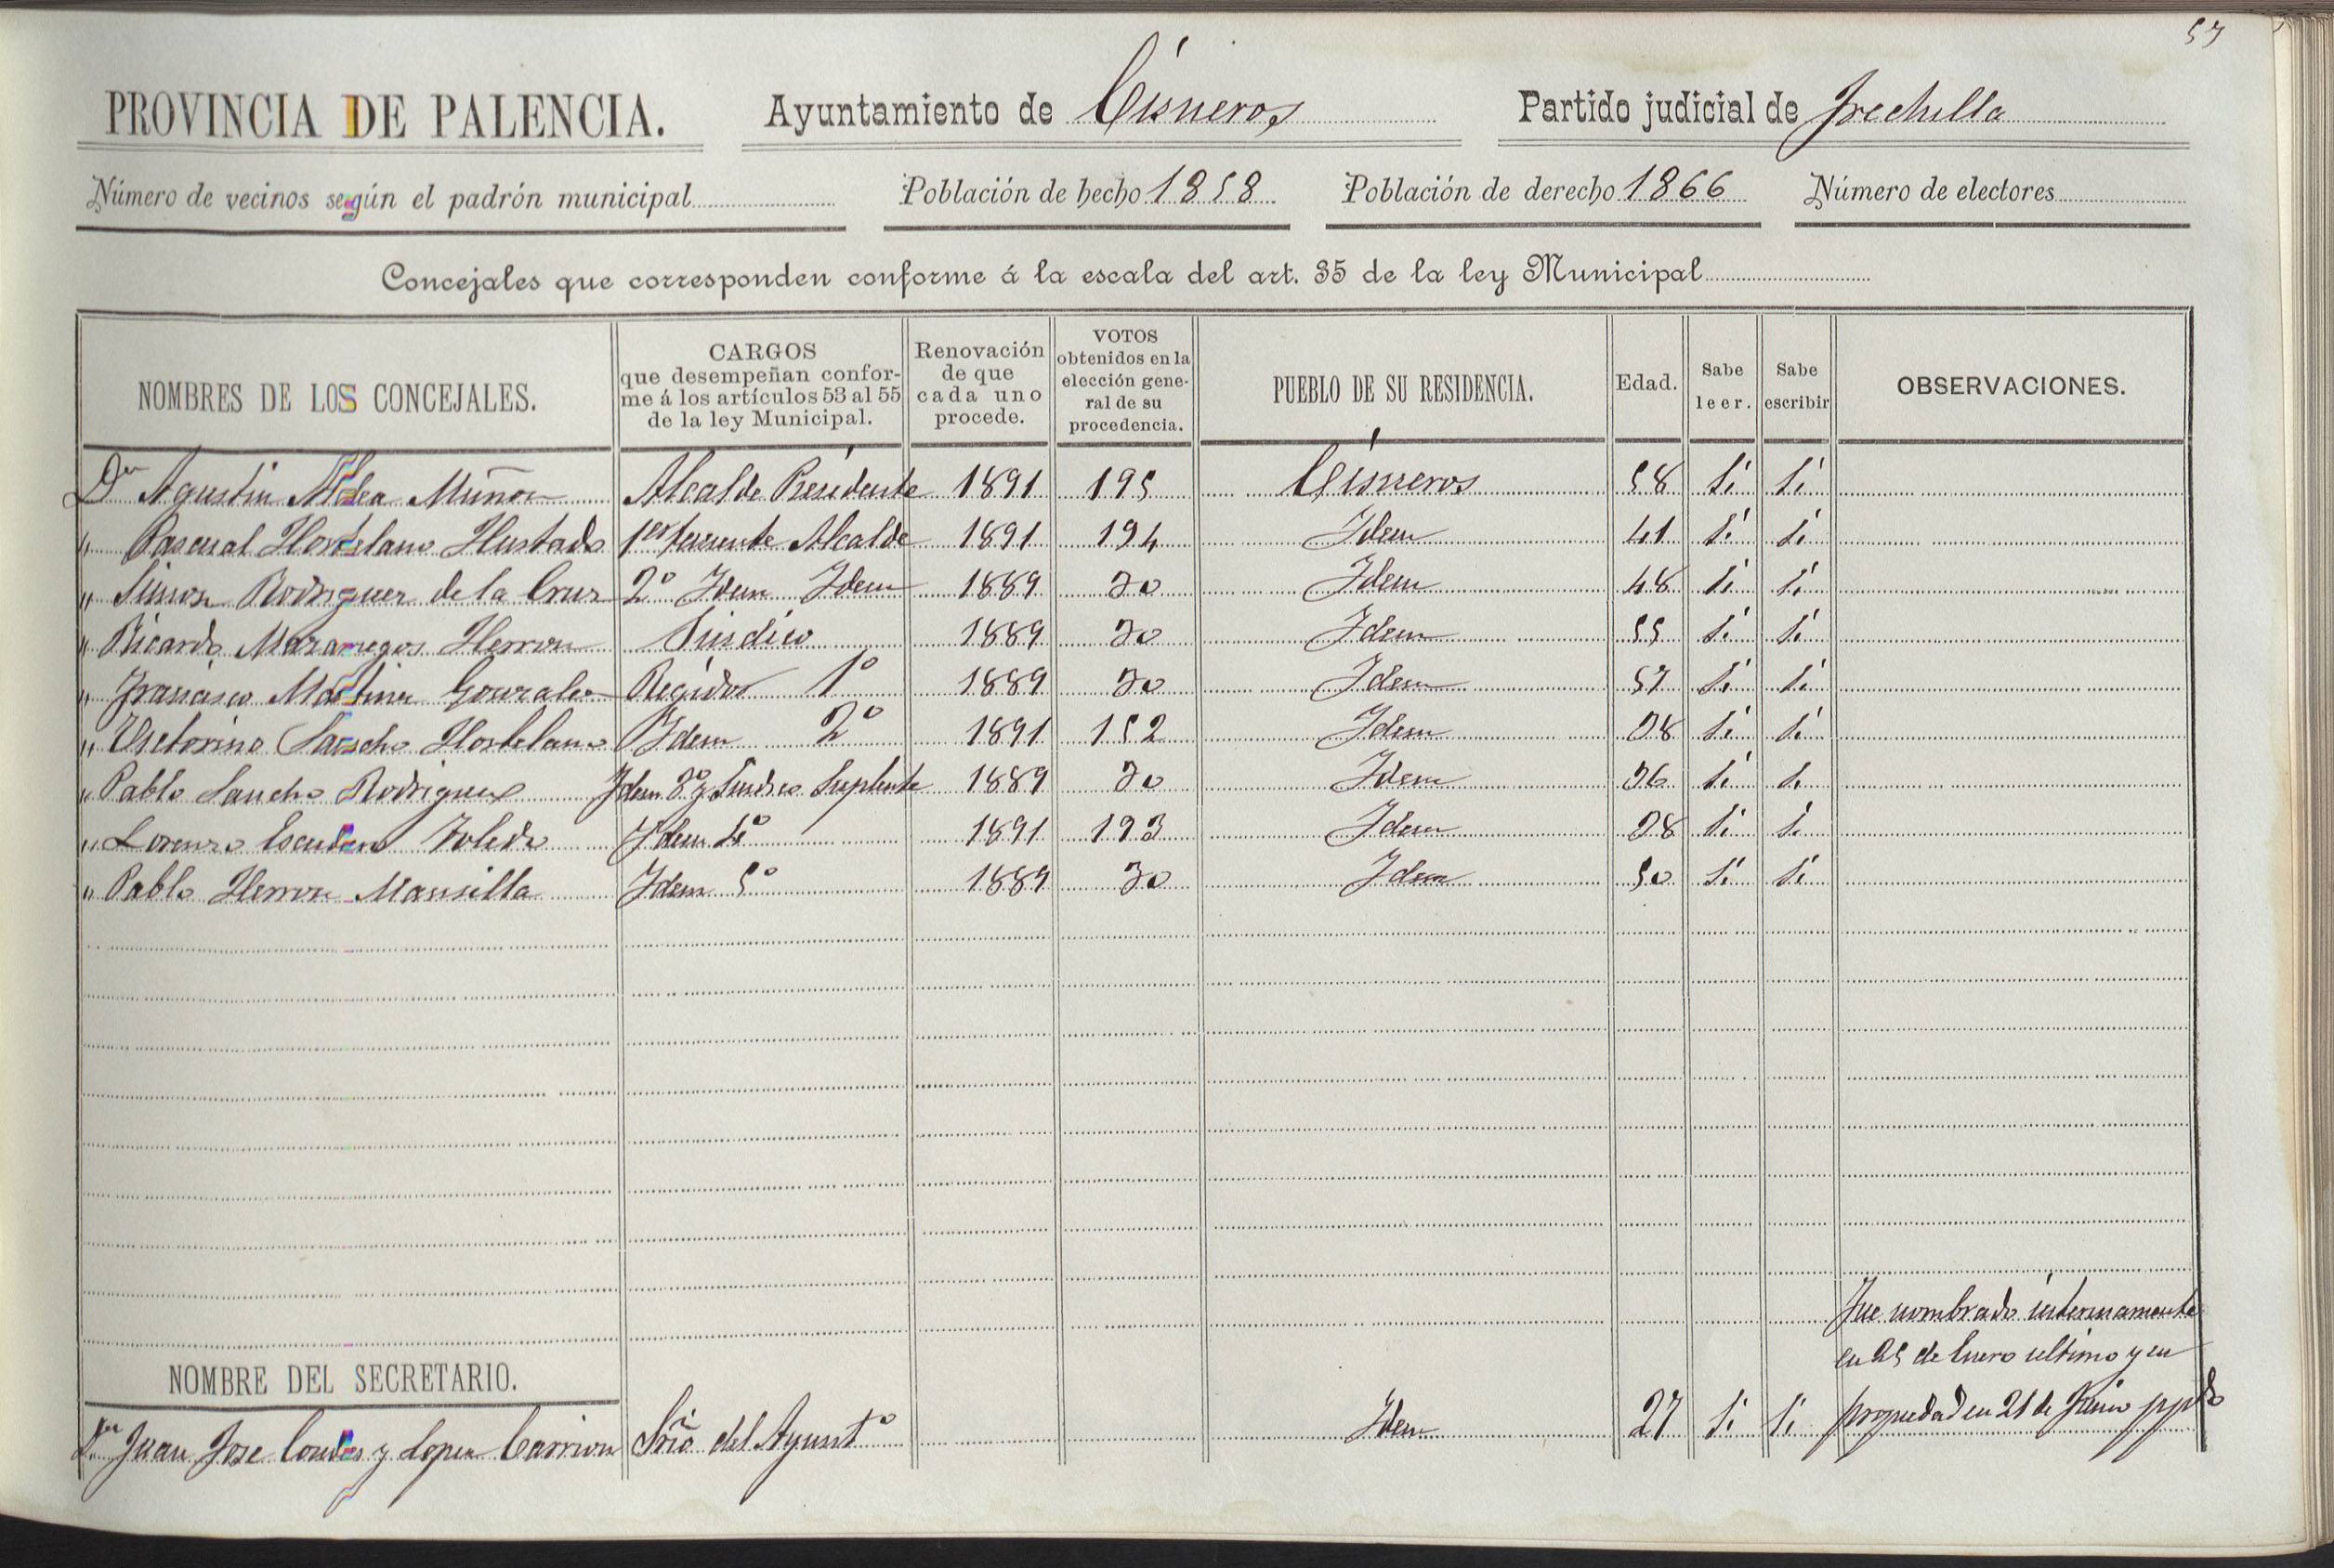 57
PROVINCIA DE PALENCIA. Ayuntamiento de Cisneros Partido judicial de Frechilla
Número de vecinos según el padrón municipal Población de hecho 1858 Población de derecho 1866 Número de electores
Concejales que corresponden conforme á la escala del art. 35 de la ley Municipal
NOMBRES DE LOS CONCEJALES.
CARGOS
que desempeñan confor-
me á los artículos 53 al 55
de la ley Municipal.
Renovación
de que
cada uno
procede.
VOTOS
obtenidos en la
elección gene-
ral de su
procedencia.
PUEBLO DE SU RESIDENCIA.
Edad.
Sabe
leer.
Sabe
escribir
OBSERVACIONES.
Dn Agustin Aldea Muñoz Alcalde Presidente 1891 195 Cisneros 58 Si Si
" Pascual Hortelano Hurtado 1er teniente Alcalde 1891 194 Idem 41 Si Si
" Simon Rodriguez de la Cruz 2º Idem Idem 1889 30 Idem 48 Si Si
" Ricardo Mazariegos Herron Sindico 1889 30 Idem 55 Si Si
" Francisco Martinez Gonzalez Regidor 1º 1889 30 Idem 57 Si Si
" Victorino Sancho Hortelano Idem 2º 1891 152 Idem 38 Si Si
" Pablo Sancho Rodriguez Idem 3º y Sindico Suplente 1889 30 Idem 36 Si Si
" Lorenzo Escudero Toledo Idem 4º 1891 193 Idem 38 Si Si
" Pablo Herron Mansilla Idem 5º 1889 30 Idem 50 Si Si
Fue nombrado interinamente
en 25 de Enero ultimo y en
NOMBRE DEL SECRETARIO.
Dn Juan Jose y Lopez Carrion Srio del Ayuntº Idem 27 Si Si propiedad en 21 de Junio ppdo